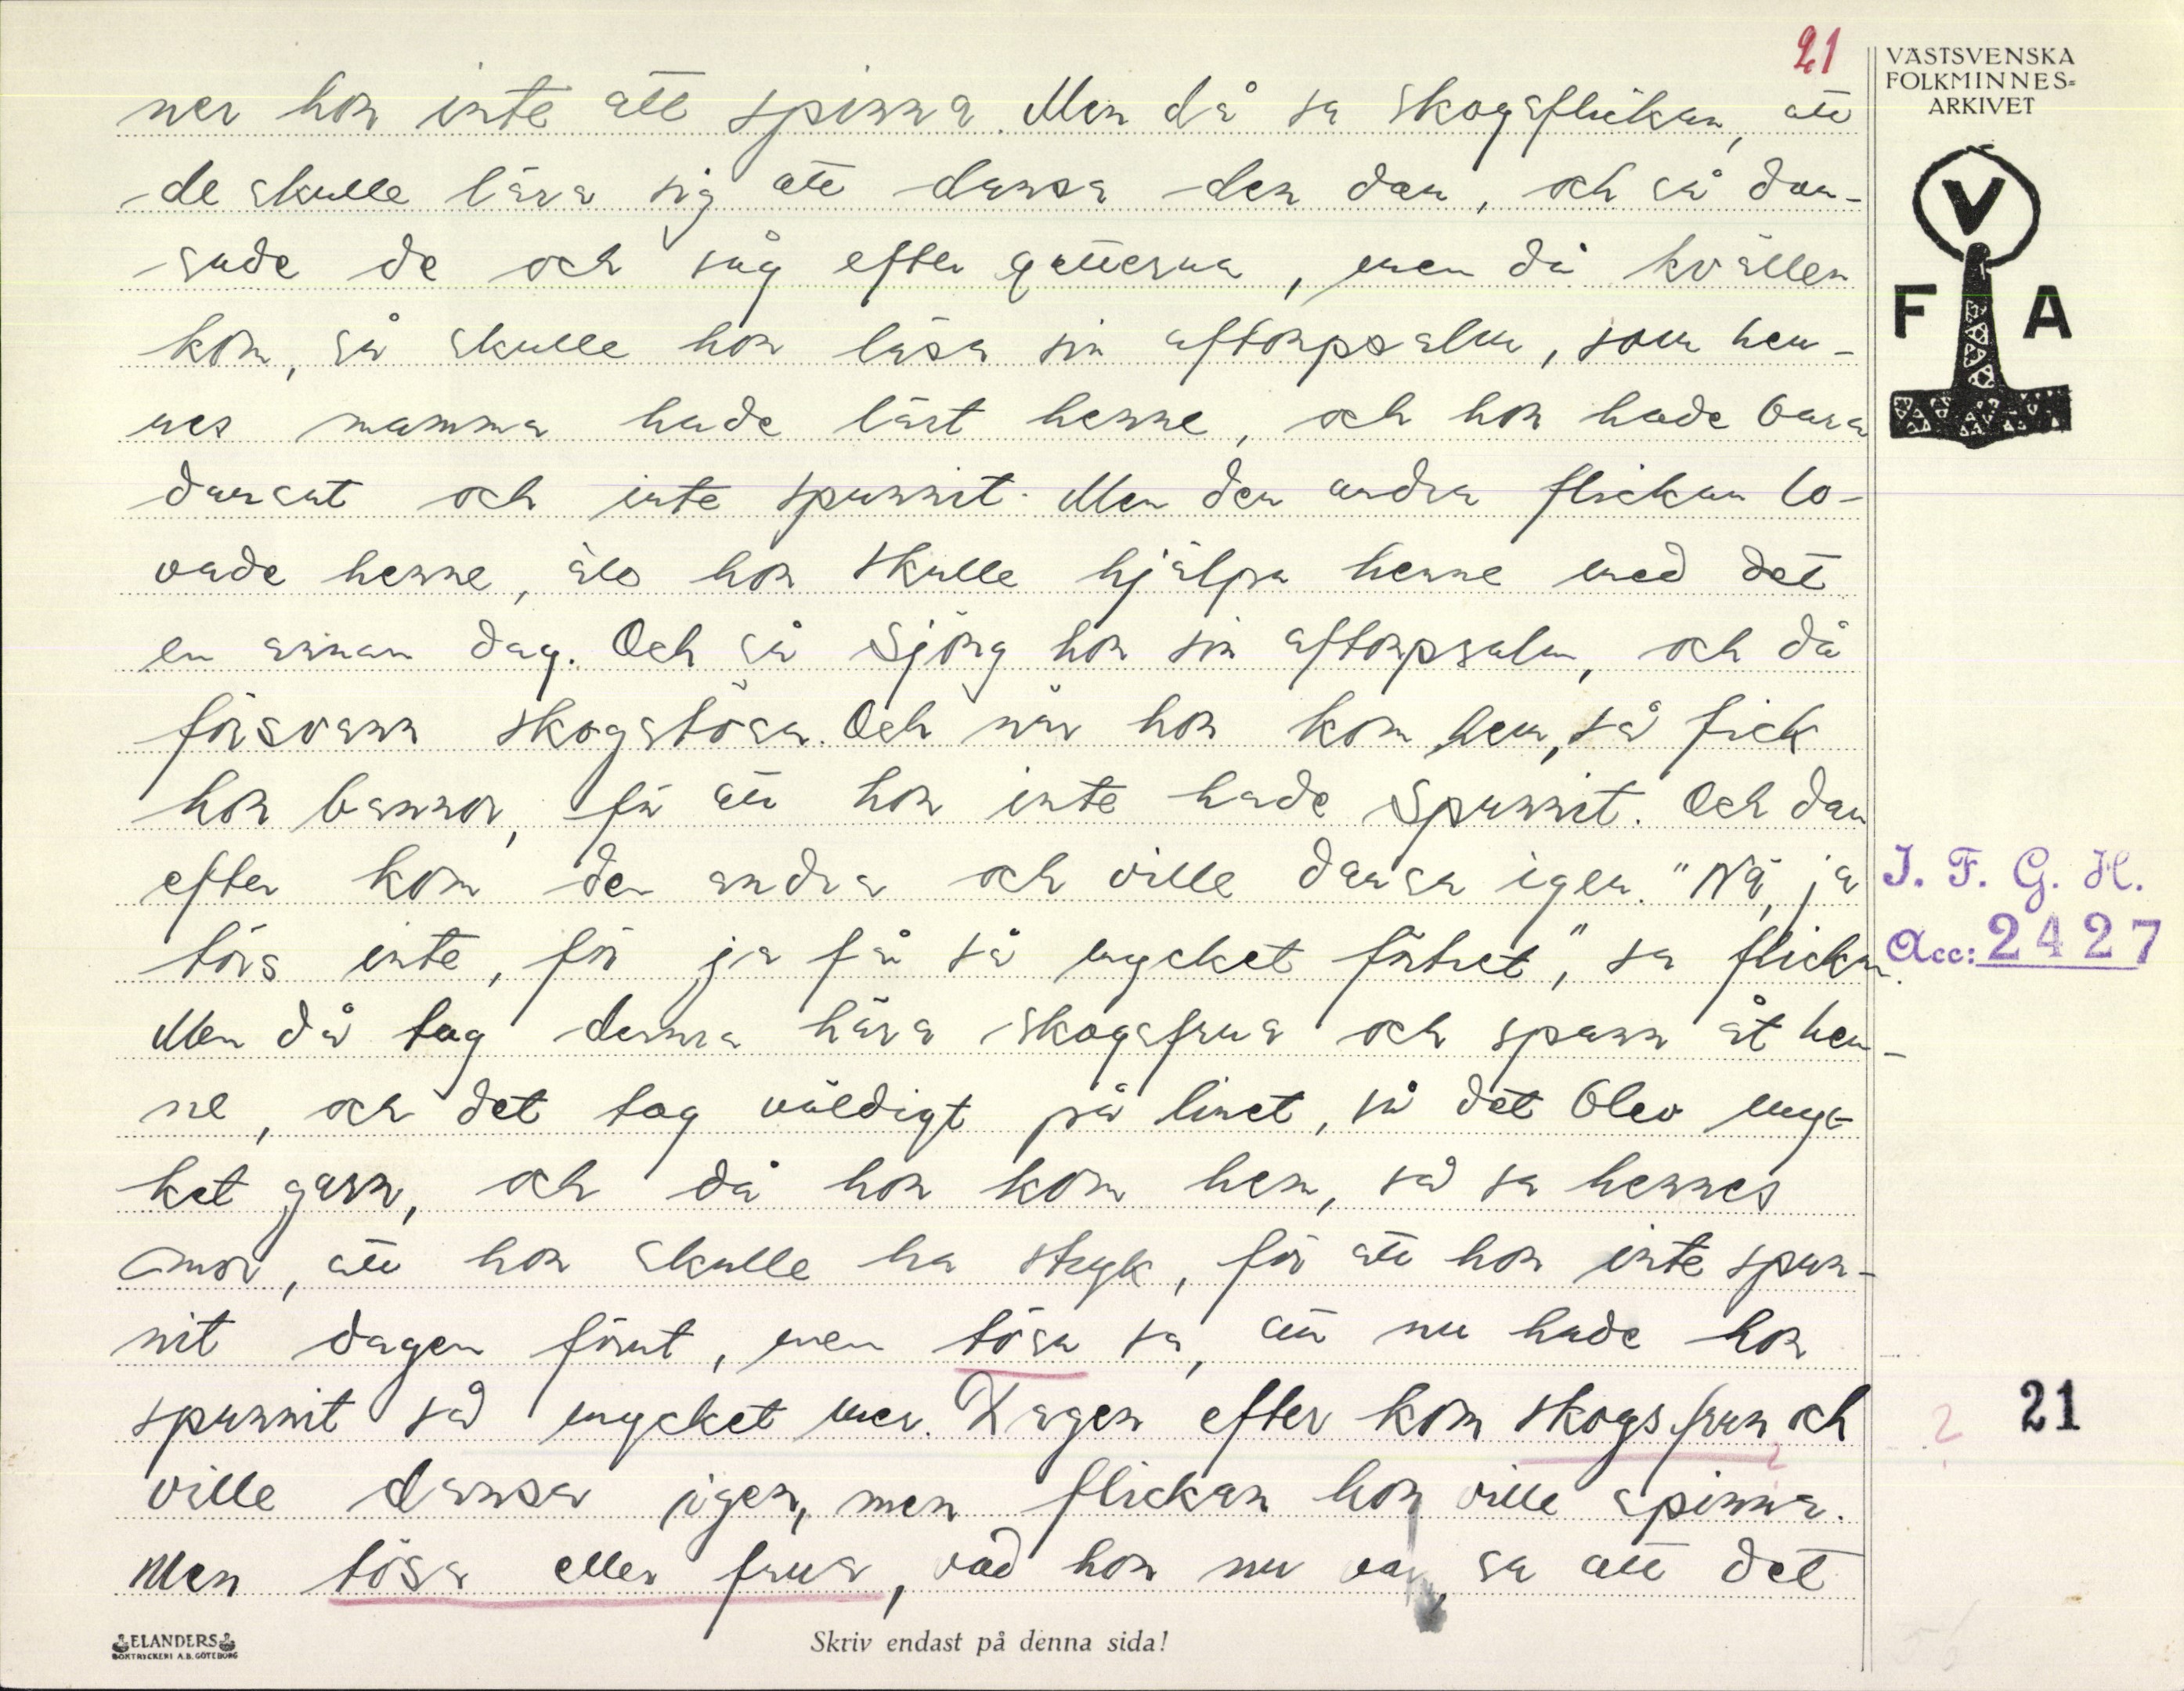 21
VÄSTSVENSKA
FOLKMINNES=
ARKIVET
V
F A
ner hon inte att spinna. Men då sa skogsflickan, att
de skulle lära sig att dansa den dan, och så dan-
sade de och såg efter getterna, men då kvällen
kom, så skulle hon läsa sin aftonpsalm, som hen-
nes mamma hade lärt henne, och hon hade bara
dansat och inte spunnit. Men den andra flickan lo-
vade henne, att hon skulle hjälpa henne med det
en annan dag. Och så sjöng hon sin aftonpsalm, och då
försvann skogstösa. Och när hon kom hem, så fick
hon bannor, för att hon inte hade spunnit. Och dan
efter kom den andra och ville dansa igen. "Nä, ja
törs inte, för ja få så mycket för'et", sa flickan.
Men då tog denna hära skogsfrua och spann åt hen-
ne, och det tog väldigt på linet, så det blev myc-
ket garn, och då hon kom hem, så sa hennes
mor, att hon skulle ha stryk, för att hon inte spun-
nit dagen förut, men tösa sa, att nu hade hon
spunnit så mycket mer. Dagen efter kom skogsfrun och
ville dansa igen, men flickan hon ville spinna.
Men tösa eller frua, vad hon nu var, sa att det
I. F. G. H.
Acc: 2427
? 21
ELANDERS
BOKTRYCKERI A.B. GÖTEBORG
Skriv endast på denna sida!